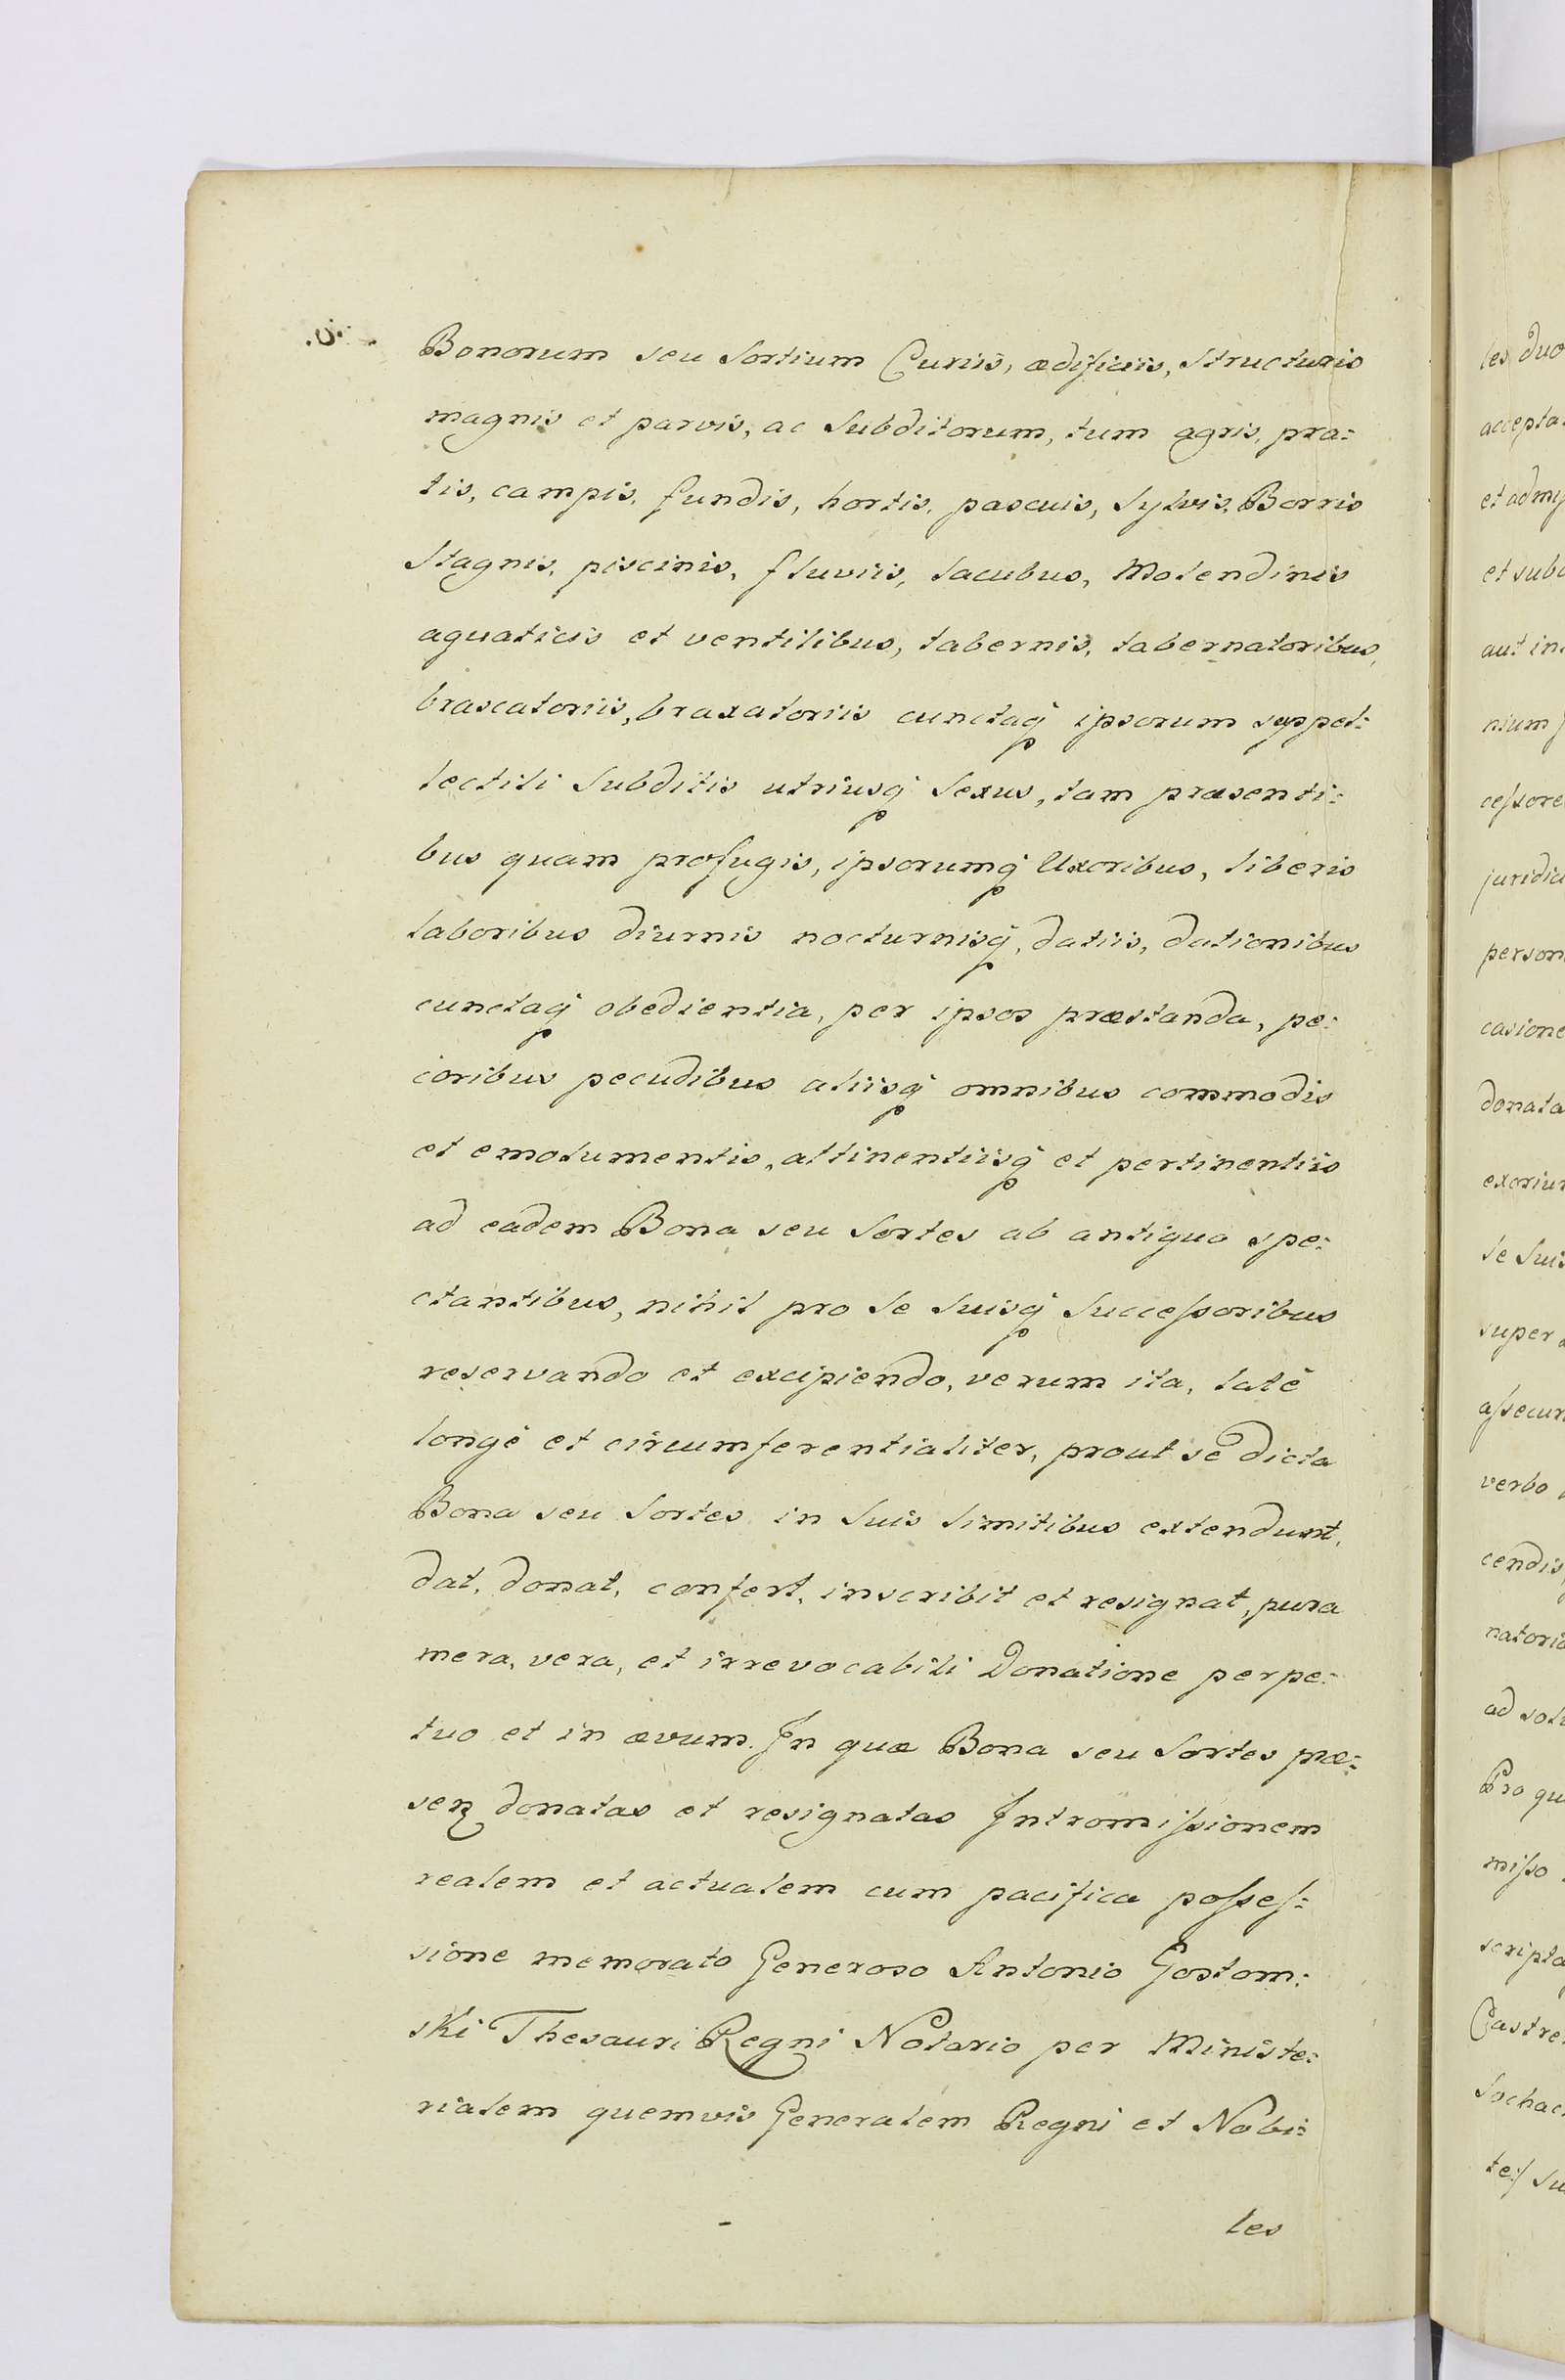 Bonorum seu Sortium Curiis, ædificiis, Structuris
magnis et parvis, ac Subditorum, tum agris, pra:
tis, campis, fundis, hortis, pascuis, Sylvis, Borris
Stagnis, piscinis, fluviis, lacubus, Molendinis
aquaticis et ventilibus, tabernis, tabernatoribus,
brascatoriis, braxatoriis cunctaq̃ ipsorum suppel:
lectili Subditis utriusq̃ Sexus, tam præsenti:
bus quam profugis, ipsorumq̃ Uxoribus, liberis
laboribus diurnis nocturnisq̃, datiis, dationibus
cunctaq̃ obedientia, per ipsos præstanda, pe:
coribus pecudibus aliisq̃ omnibus commodis
et emolumentis, attinentiisq̃ et pertinentiis
ad eadem Bona seu Sortes ab antiquo spe:
ctantibus, nihil pro Se Suisq̃ Succeſsoribus
reservando et excipiendo, verum ita, latè
longè et circumferentialiter, prout se dicta
Bona seu Sortes in Suis limitibus extendunt,
dat, donat, confert, inscribit et resignat, pura
mera, vera, et irrevocabili Donatione perpe:
tuo et in ævum. In quæ Bona seu Sortes præ:
senꝫ donatas et resignatas Intromiſsionem
realem et actualem cum pacifica poſseſ:
sione memorato Generoso Antonio Gostom:
ski Thesauri Regni Notario per Ministe:
rialem quemvis Generalem Regni et Nobi:
les
les duo
accepta
et admi
et sub
aut in
nium
ceſsore
juridic
person
casione
donata
exoriu
se Suis
super
aſsecur
verbo
cendis
natori
ad sol
Pro qu
miſso
scripta
Castre
Sochac
te:/ Su